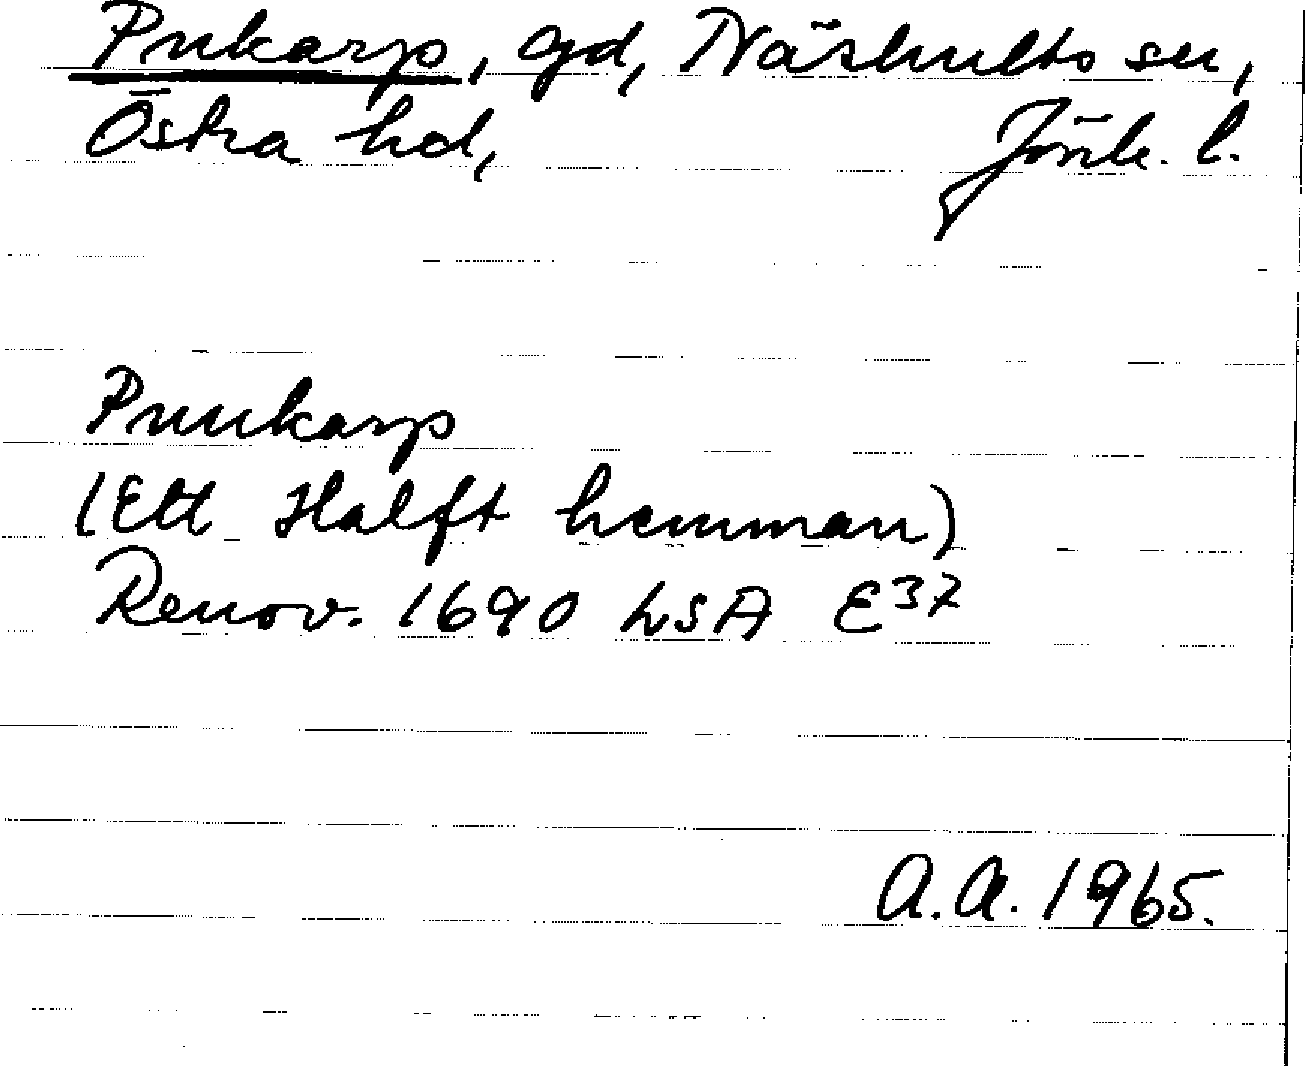 Pukarp, gd, Näshults sn,
Östra hd, Jönk. l.
Puukarp
(Ett Halft hemman)
Renov. 1690 LSA E37
A.A. 1965.